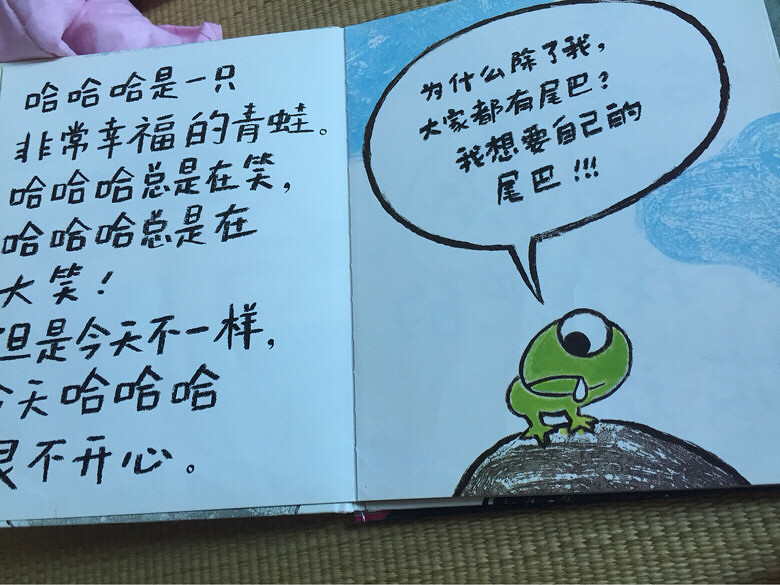 哈哈哈是一只
非常幸福的青蛙。
哈哈哈总是在笑，
哈哈哈总是在
大笑！
但是今天不一样，
今天哈哈哈
很不开心。
为什么除了我，
大家都有尾巴？
我想要自己的
尾巴！！！